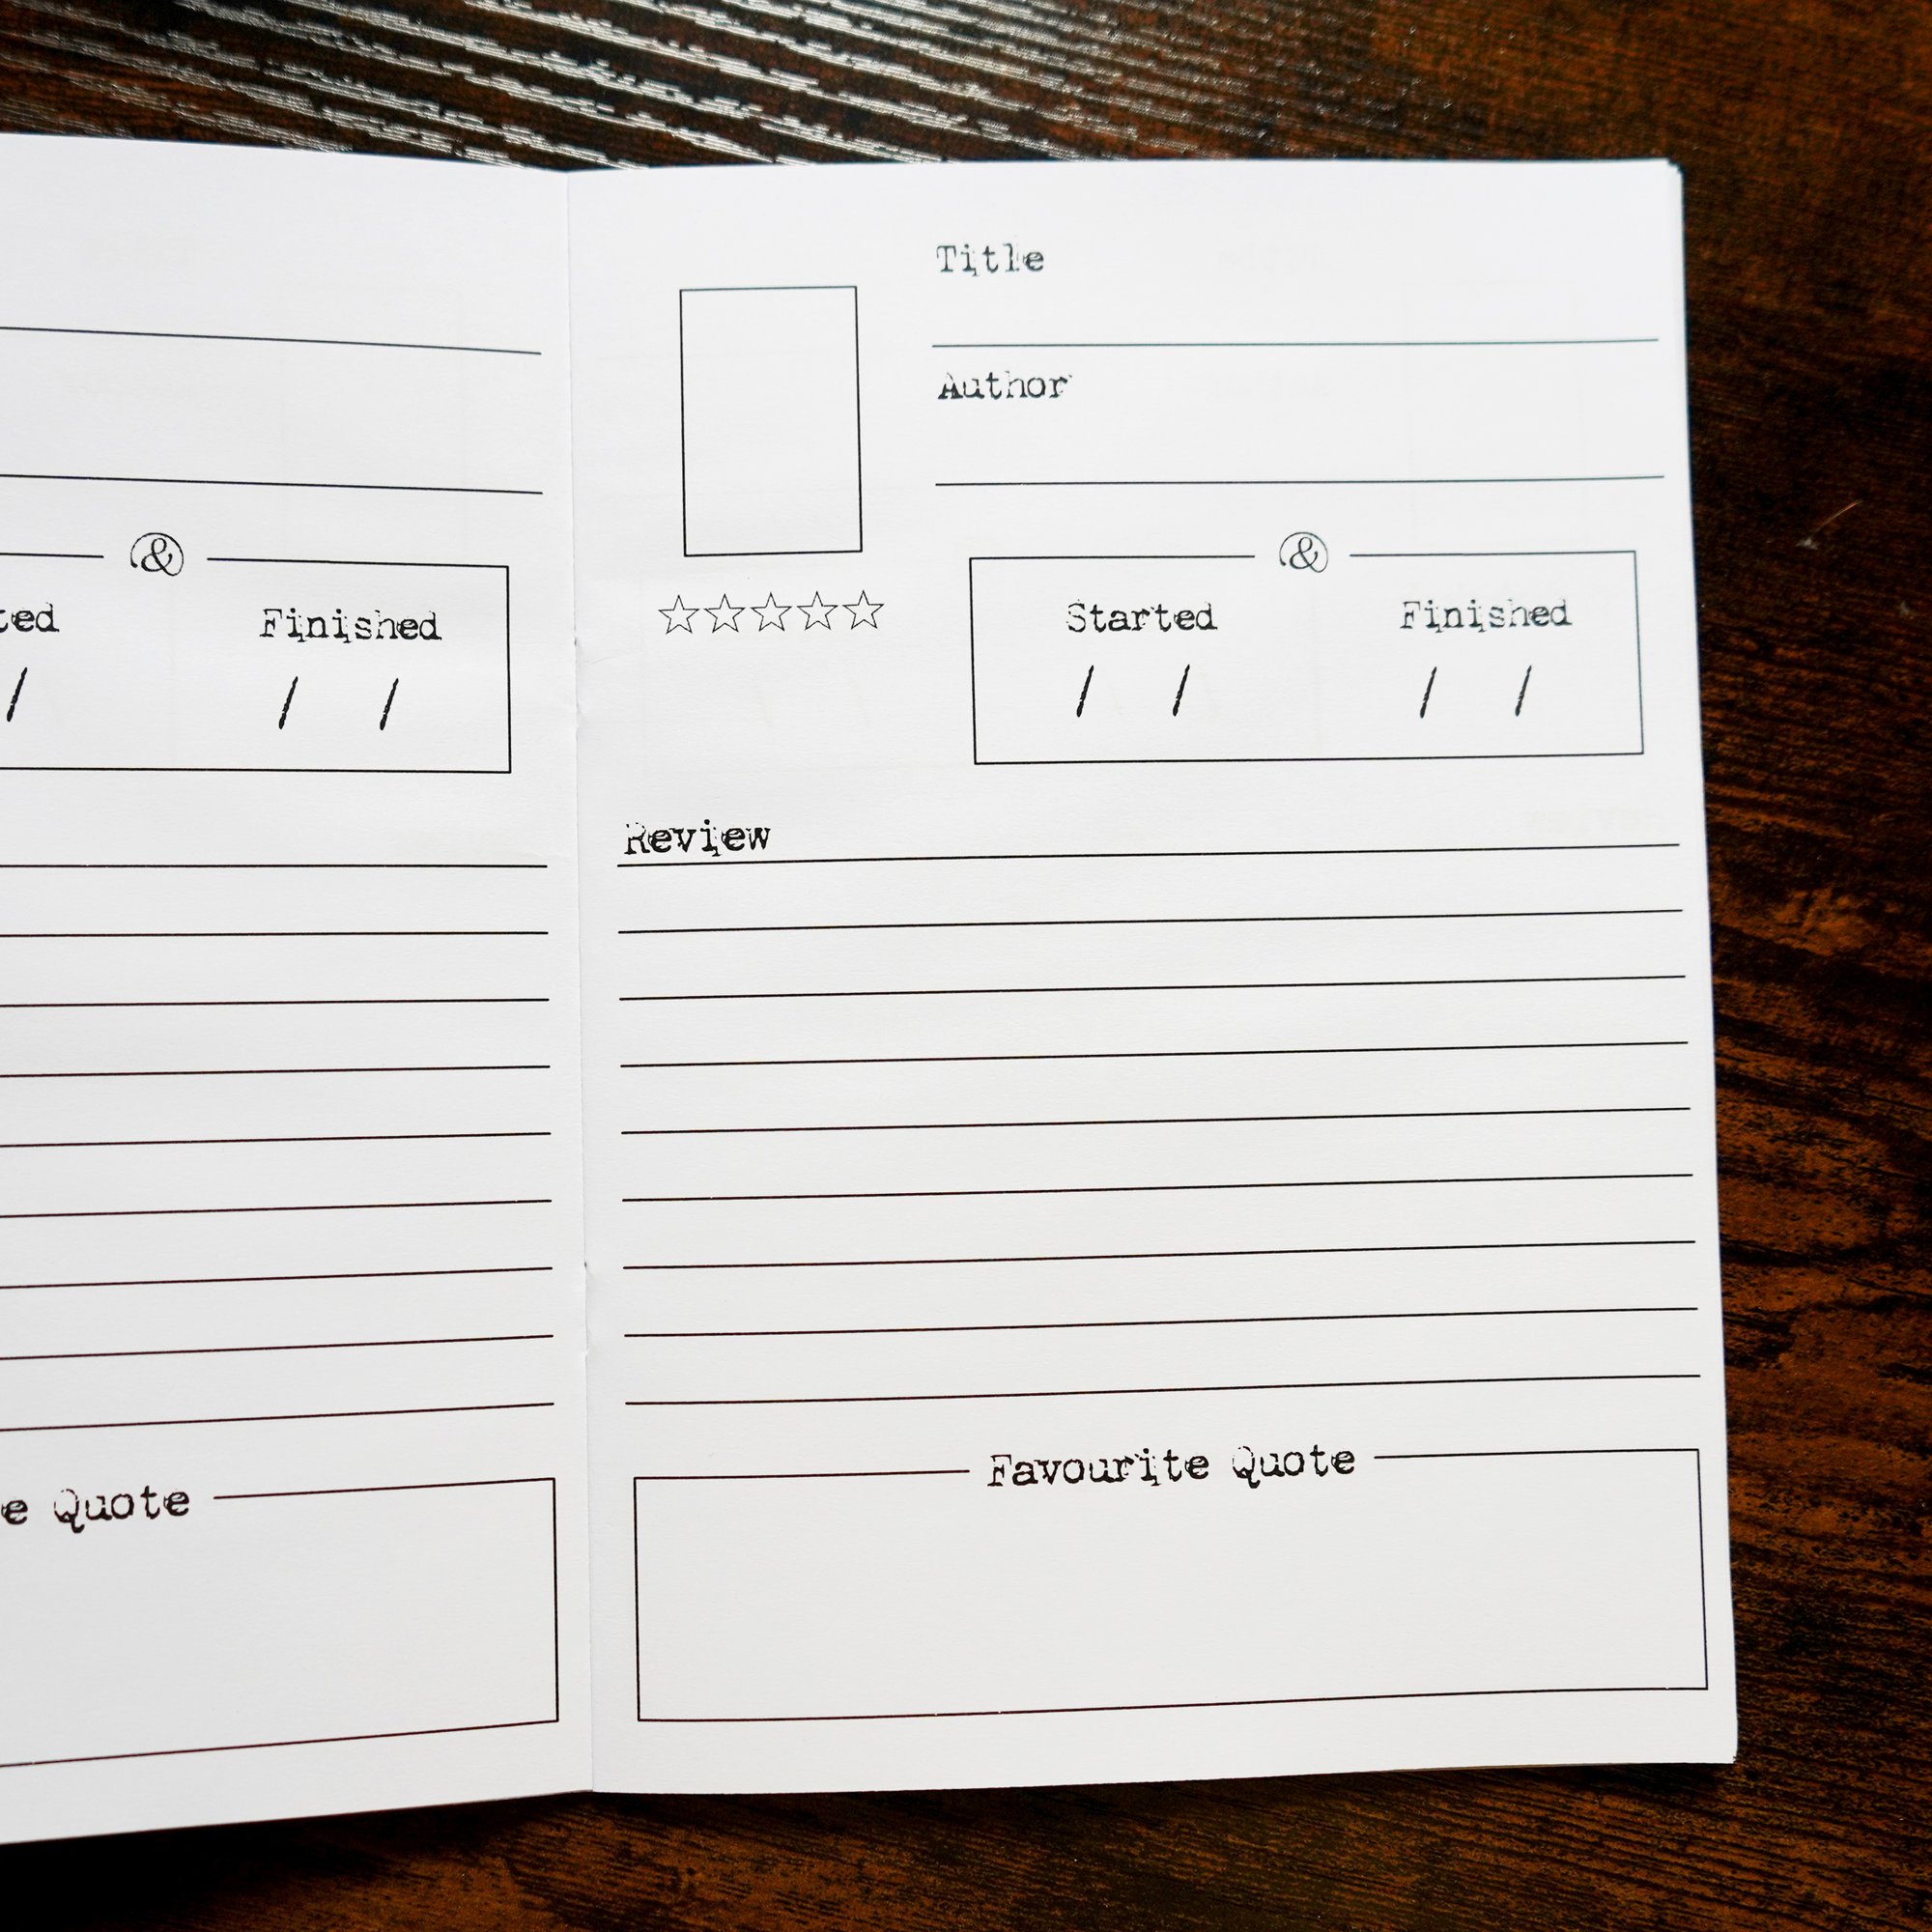 &
Finished
/ /
Quote
Title
Author
&
Started Finished
/ / / /
Review
Favourite Quote